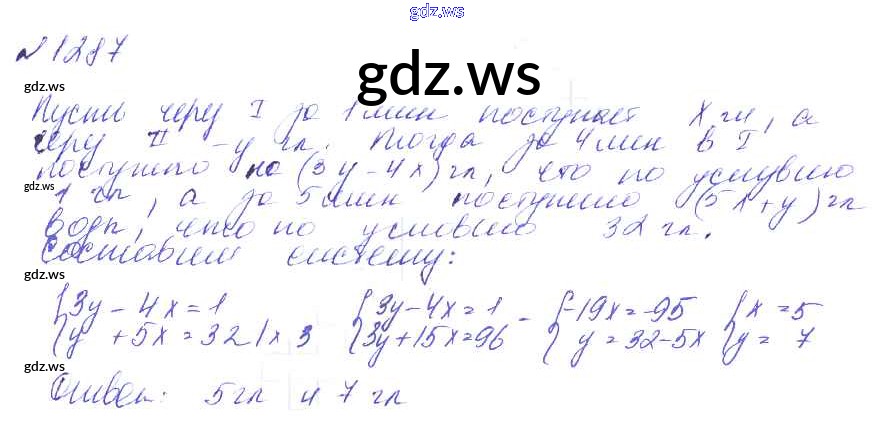 gdz.ws
№1287
gdz.ws
gdz.ws
Пусть через I за 1 мин поступает х гл, а
через II - у гл. Тогда за 4 мин в I
gdz.ws
поступило на (3у - 4х) гл, что по условию
1 гл, а за 5 мин поступило (5х + у) гл
воды, что по условию 32 гл.
Составим систему:
gdz.ws
{3y - 4x = 1 {3y - 4x = 1 - {-19x = -95 {x = 5
{y + 5x = 32 | x 3 {3y + 15x = 96 {y = 32 - 5x {y = 7
gdz.ws
Ответ: 5 гл и 7 гл